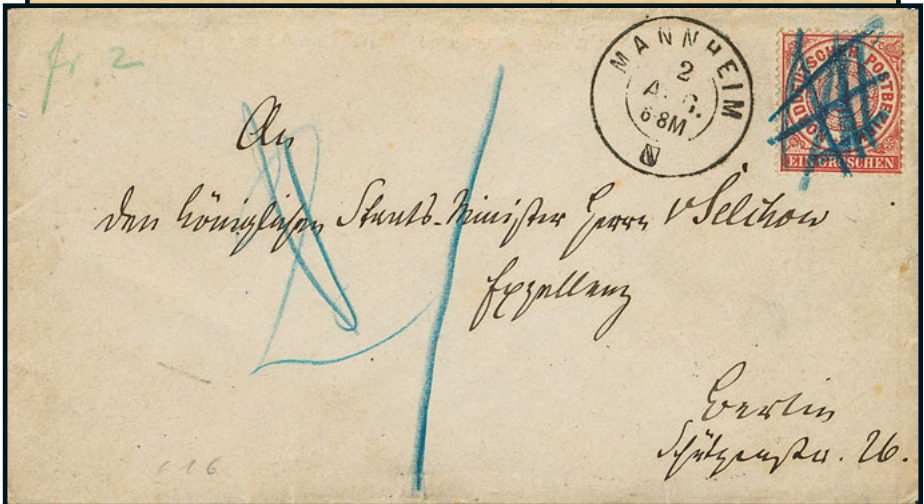 fr 2
MANNHEIM
2
AUG.
6-8M
N
NORDDEUTSCHER POSTBEZIRK
EIN GROSCHEN
An
den Königlichen Staats-Minister Herrn v Selchow
Exzellenz
Berlin
Schützenstr. 26.